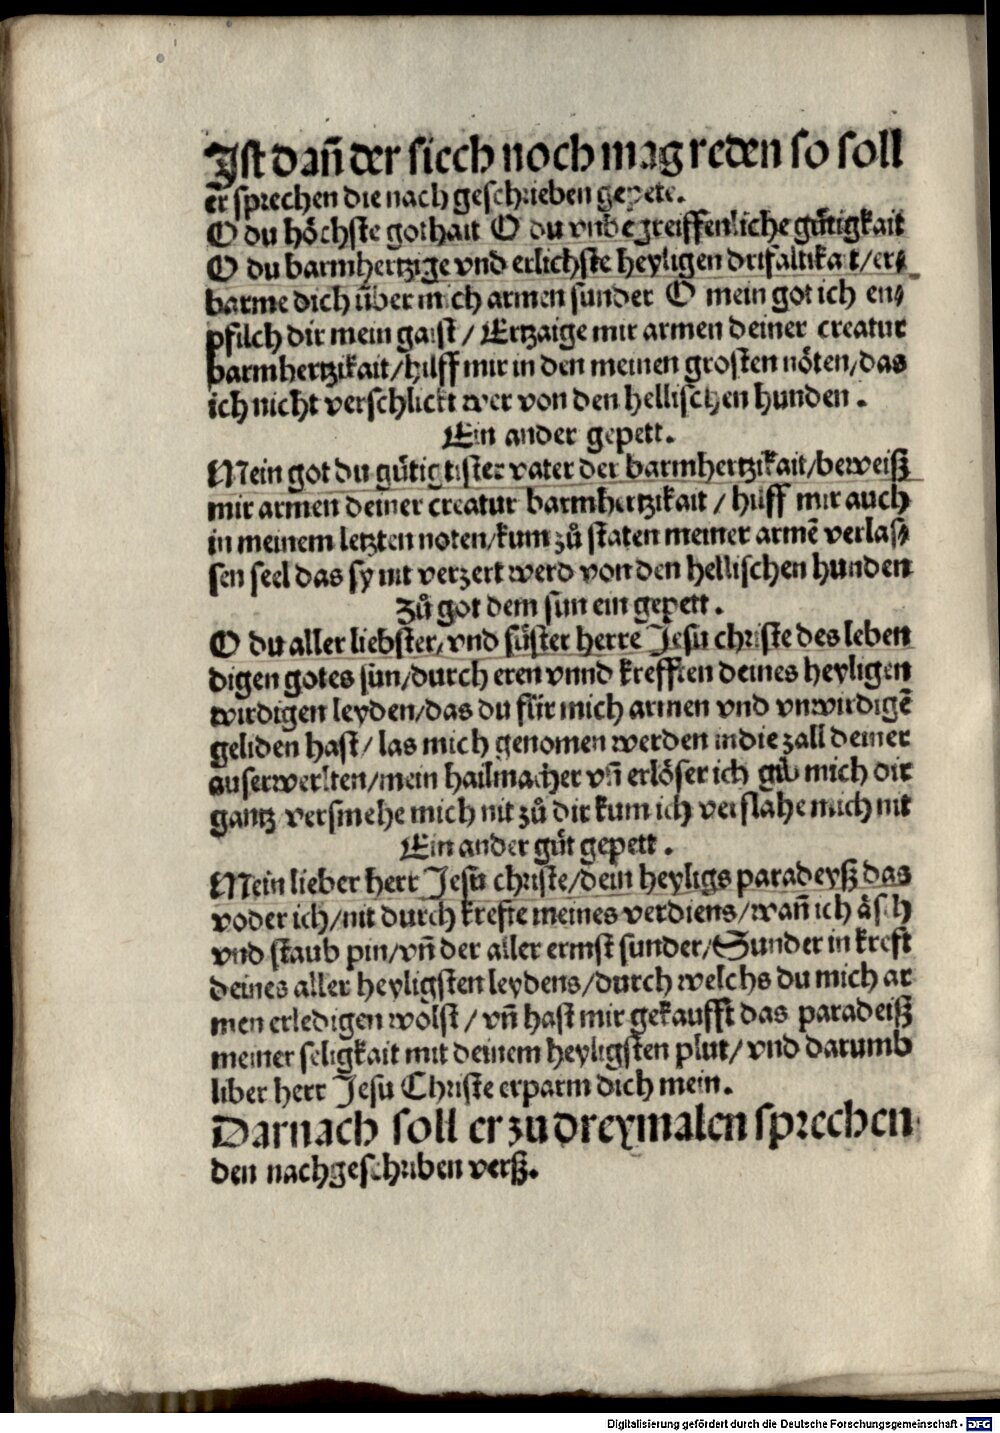 Ist dañ der siech noch mag reden so soll
er sprechen die nach geschrieben gepete.
O du höchste gothait O du vnbegreiffenliche gůtigkait
O du barmhertzige vnd erlichste heyligen drifaltikait/er⸗
barme dich über mich armen sunder O mein got ich en⸗
pfilch dir mein gaist / Ertzaige mir armen deiner creatur
barmhertzikait/hilff mir in den meinen grosten nöten/das
ich nicht verschlickt wer von den hellischen hunden .
Ein ander gepett.
Mein got du gůtigtister vater der barmhertzikait/beweiß
mir armen deiner creatur barmhertzikait / hilff mir auch
in meinem letzten noten/kum zů staten meiner armē verlas⸗
sen seel das sy nit verzert werd von den hellischen hunden
Zů got dem sun ein gepett .
O du aller liebster/vnd süster herre Jesu christe des leben
digen gotes sun/durch eren vnnd krefften deines heyligen
wirdigen leyden/das du für mich armen vnd vnwirdigē
geliden hast/ las mich genomen werden in die zall deiner
auserwerlten/mein hailmacher vñ erlöser ich gib mich dir
gantz versmehe mich nit zů dir kum ich verslahe mich nit
Ein ander gůt gepett .
Mein lieber herr Jesu christe/dein heyligs paradeyß das
voder ich/nit durch krefte meines verdiens/wañ ich äsch
vnd staub pin/vñ der aller ermst sunder/Sunder in kreft
deines aller heyligsten leydens/durch welchs du mich ar
men erledigen wolst / vñ hast mir gekaufft das paradeiß
meiner seligkait mit deinem heyligsten plut/ vnd darumb
liber herr Jesu Christe erparm dich mein .
Darnach soll er zu dreymalen sprechen
den nachgeschriben verß.
Digitalisierung gefördert durch die Deutsche Forschungsgemeinschaft - DFG